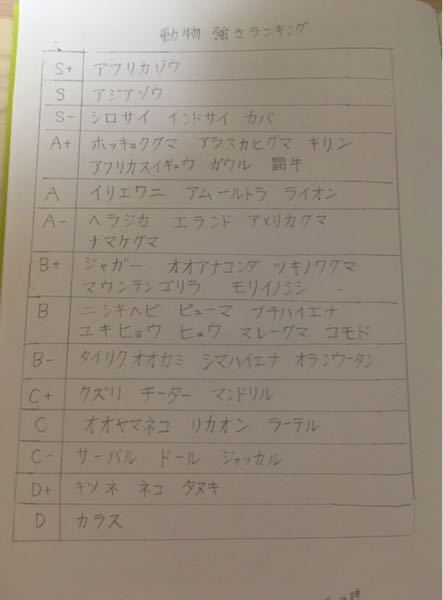 動物 強さランキング
S+ アフリカゾウ
S アジアゾウ
S- シロサイ インドサイ カバ
A+ ホッキョクグマ アラスカヒグマ キリン
アフリカスイギュウ ガウル 闘牛
A イリエワニ アムールトラ ライオン
A- ヘラジカ エランド アメリカグマ
ナマケグマ
B+ ジャガー オオアナコンダ ツキノワグマ
マウンテンゴリラ モリイノシシ
B ニシキヘビ ピューマ ブチハイエナ
ユキヒョウ ヒョウ マレーグマ コモド
B- タイリクオオカミ シマハイエナ オランウータン
C+ クズリ チーター マンドリル
C オオヤマネコ リカオン ラーテル
C- サーバル ドール ジャッカル
D+ キツネ ネコ タヌキ
D カラス